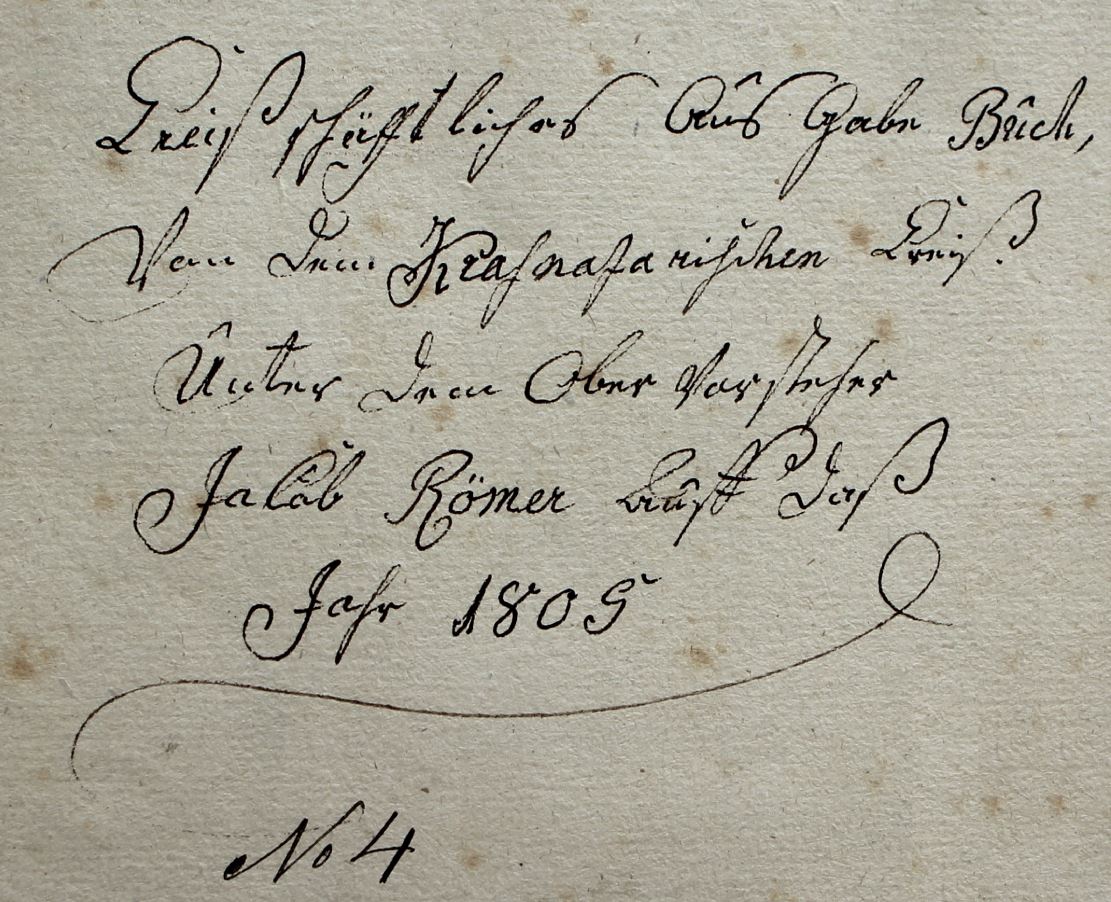 Creiß schäfftliches Aus Gabe Buch,
Von dem Krasnajarischen Creiß.
Unter dem Ober Vorsteher
Jacob Römer auff daß
Jahr 1805
No 4